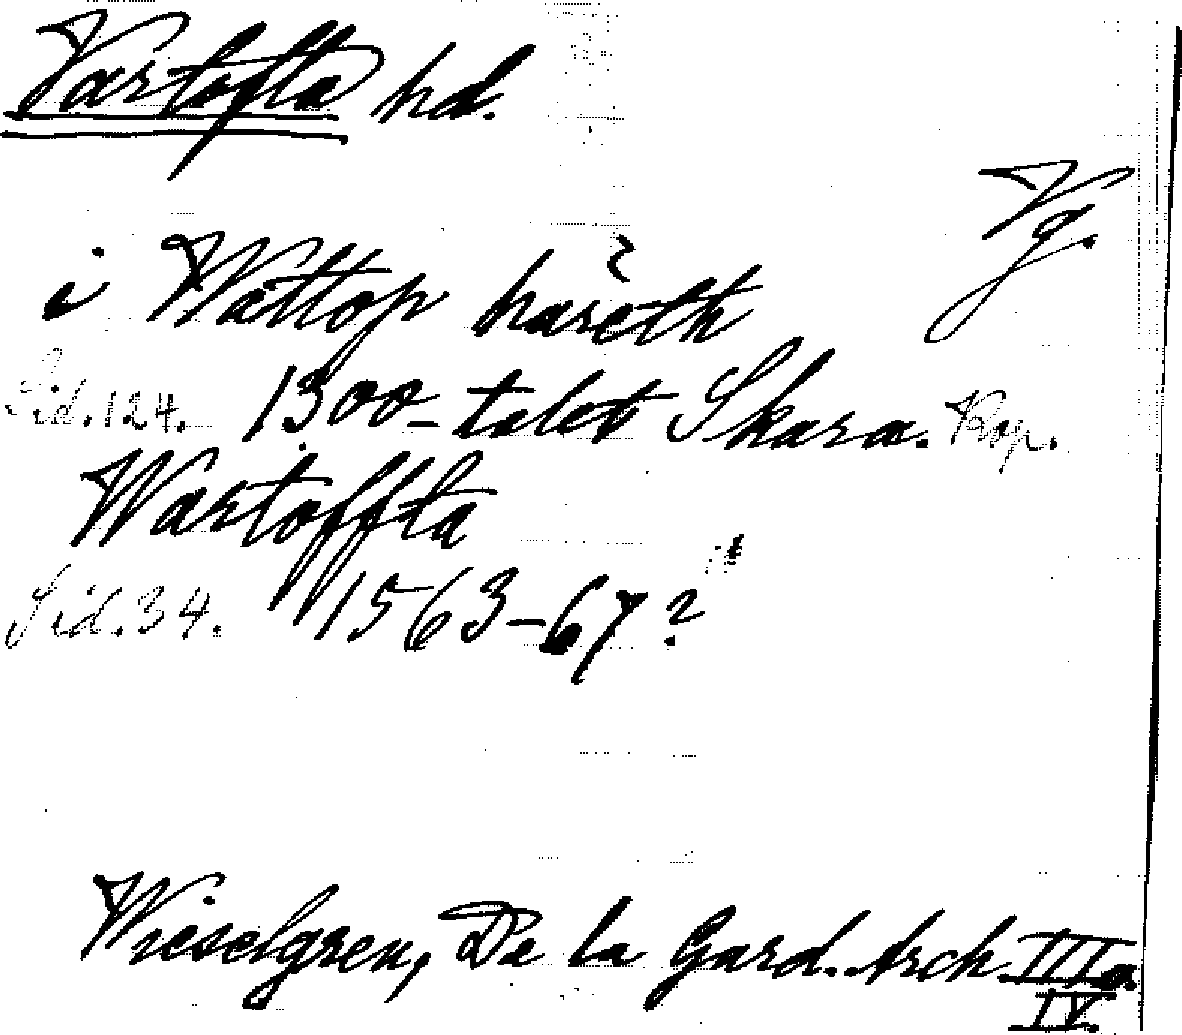 Vartofta hd.
Vg.
i Wattop haręth
Sid. 124. 1300-talet Skara. Kop.
Wartoffta
Sid. 34. 1563-67?
Wieselgren, De la Gard. Arch. III a.
IV.